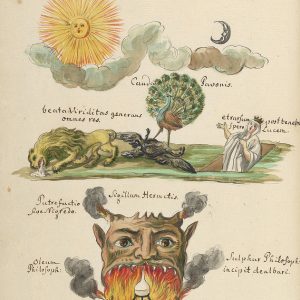 Cauda Pavonis.
beata Viriditas generans
omnes res.
et rursum
spero
post tenebras
Lucem.
Putrefactio
sive Nigredo.
Sigillum Hermetis.
Oleum
Philosoph:
Sulphur Philosoph:
incipit dealbari.